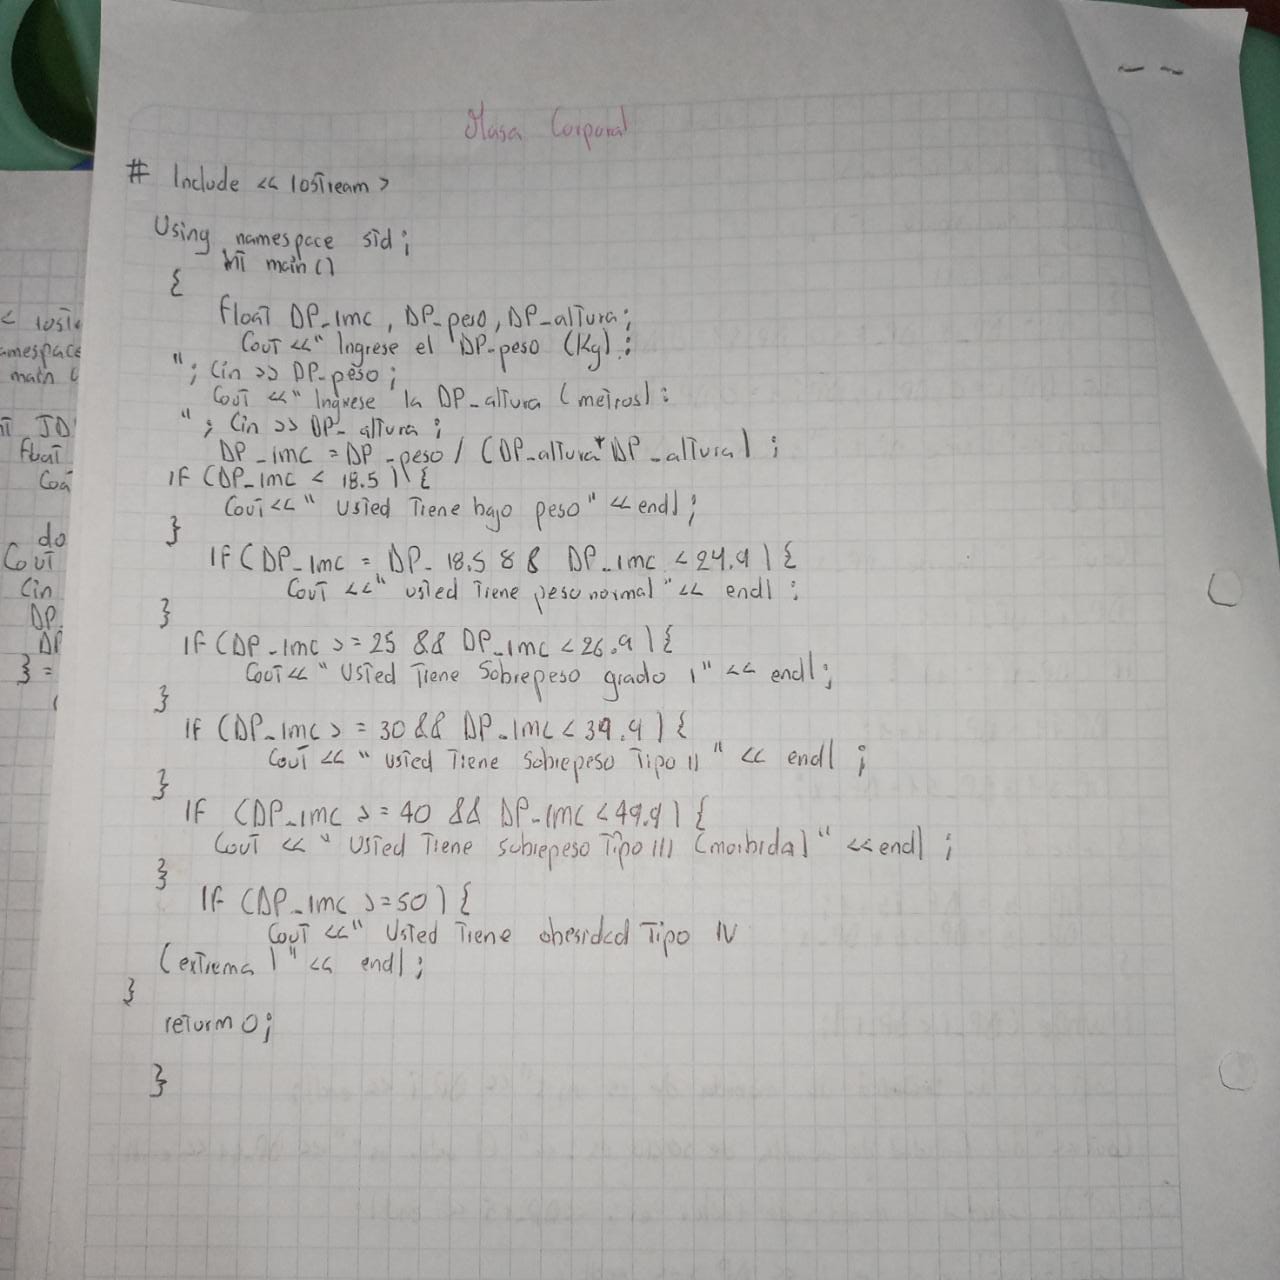 Masa Corporal
# Include << Iostream >
Using namespace std;
Int main()
{
Float DP_Imc, DP_peso, DP_altura;
Cout <<" Ingrese el DP_peso (Kg):
"; Cin >> DP_peso;
Cout <<" Ingrese la DP_altura (metros):
"; Cin >> DP_altura;
DP_imc = DP_peso / (DP_altura*DP_altura);
IF (DP_imc < 18.5) {
Cout<<" Usted Tiene bajo peso" << endl;
}
IF (DP_Imc = DP_18.5 && DP_imc <24.9) {
Cout <<" usted Tiene peso normal" << endl;
}
IF (DP_Imc >=25 && DP_Imc <26.9) {
Cout<<" Usted Tiene Sobrepeso grado 1" << endl;
}
IF (DP_Imc >= 30 && DP_Imc < 39.9) {
Cout << " usted Tiene Sobrepeso Tipo II" << endl;
}
IF (DP_Imc >= 40 && DP_Imc <49.9) {
Cout << " Usted Tiene sobrepeso Tipo III (morbida)" <<endl;
}
IF (DP_Imc >=50) {
Cout <<" Usted Tiene obesidad Tipo IV
(extrema)" << endl;
}
return 0;
}
< Ioste
amespace
main (
JD
Float
Cou
do
Cout
Cin
DP
DP
} =